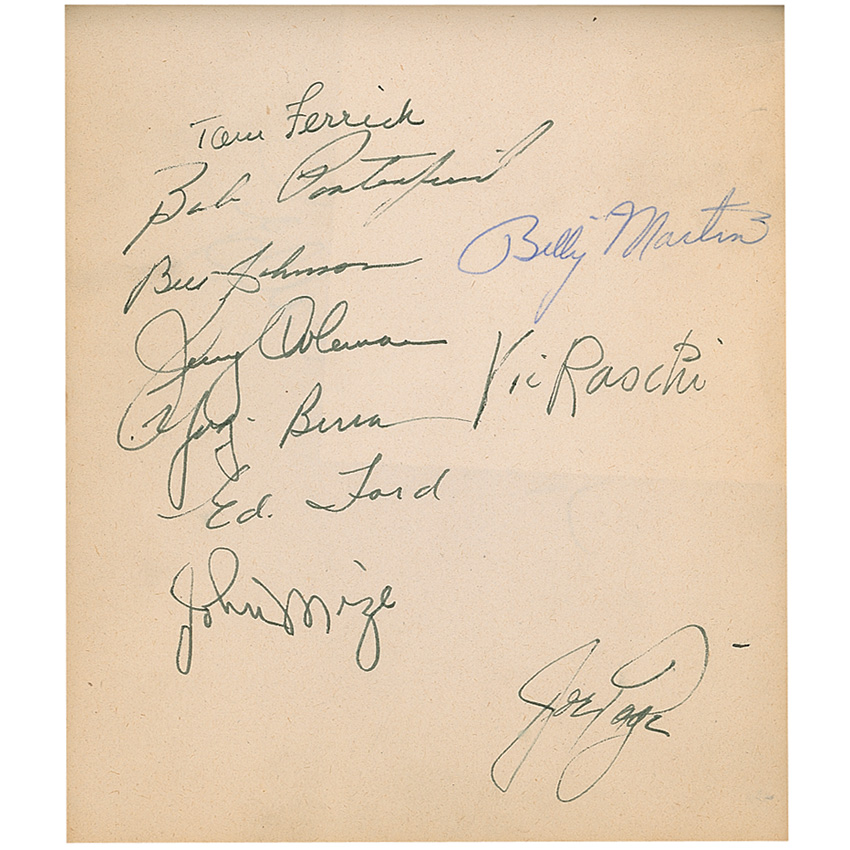 Tom Ferrick
Bob Porterfield
Billy Martin
Bill Johnson
Jerry Coleman
Vic Raschi
Yogi Berra
Ed. Ford
John Mize
Joe Page